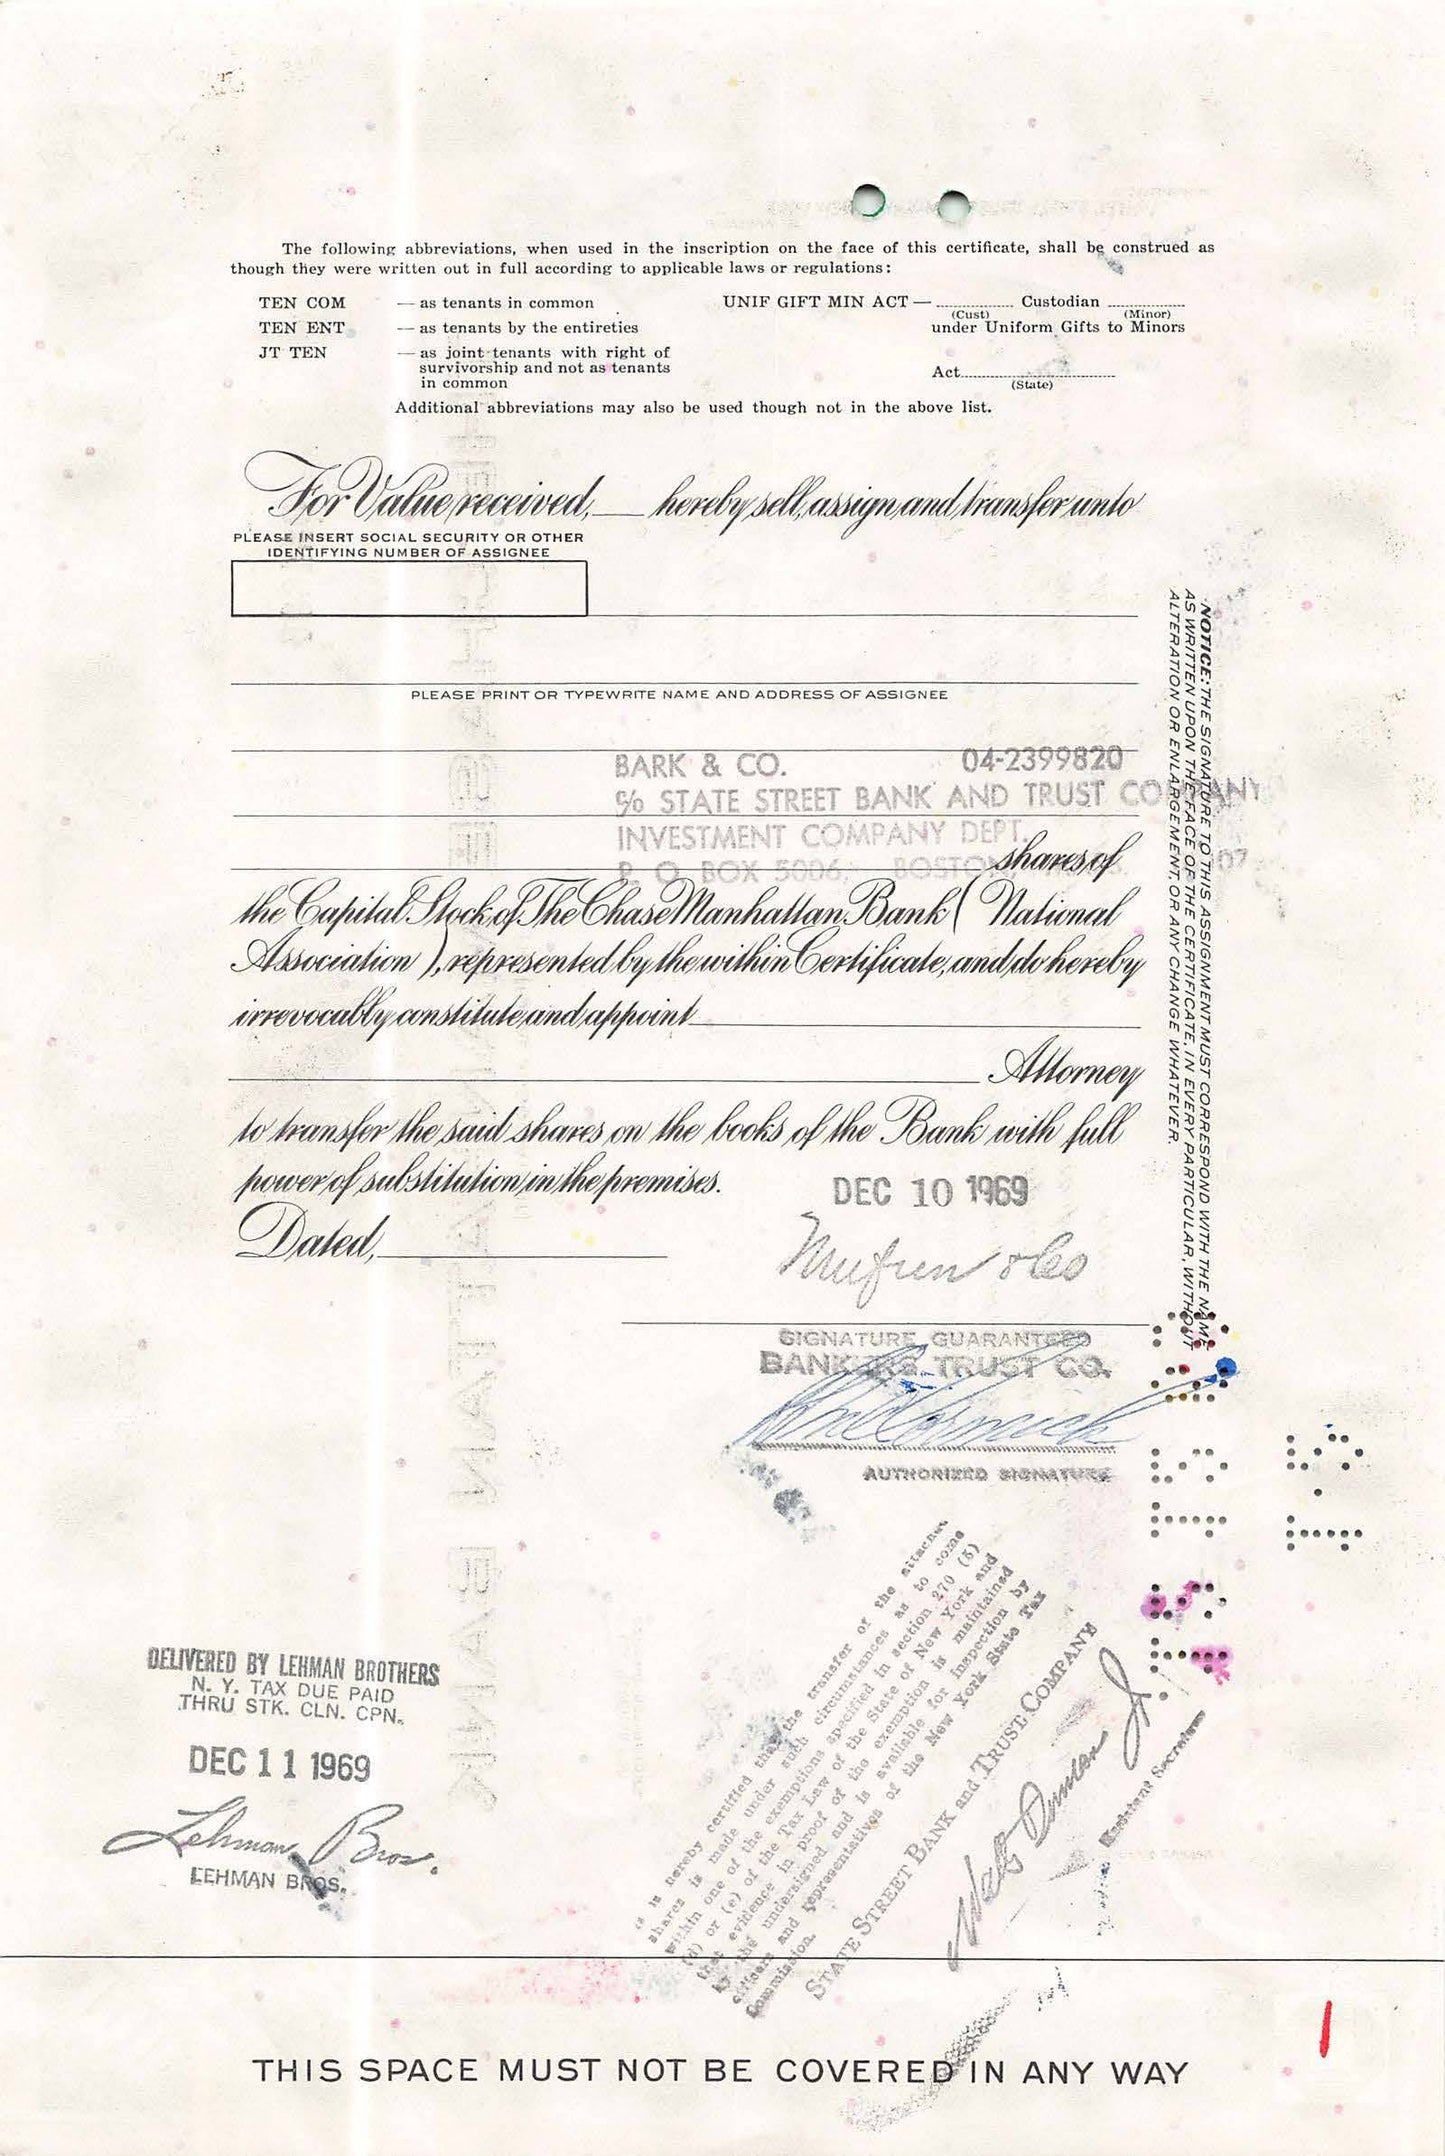 The following abbreviations, when used in the inscription on the face of this certificate, shall be construed as
though they were written out in full according to applicable laws or regulations:
TEN COM — as tenants in common
TEN ENT — as tenants by the entireties
JT TEN — as joint tenants with right of
survivorship and not as tenants
in common
UNIF GIFT MIN ACT — Custodian
(Cust) (Minor)
under Uniform Gifts to Minors
Act
(State)
Additional abbreviations may also be used though not in the above list.
For Value received, hereby sell, assign and transfer unto
PLEASE INSERT SOCIAL SECURITY OR OTHER
IDENTIFYING NUMBER OF ASSIGNEE
PLEASE PRINT OR TYPEWRITE NAME AND ADDRESS OF ASSIGNEE
BARK & CO. 04-2399820
c/o STATE STREET BANK AND TRUST COMPANY
INVESTMENT COMPANY DEPT.
P. O. BOX 5006, BOSTON
shares of
the Capital Stock of The Chase Manhattan Bank (National
Association), represented by the within Certificate, and do hereby
irrevocably constitute and appoint
Attorney
to transfer the said shares on the books of the Bank with full
power of substitution in the premises.
Dated,
DEC 10 1969
& Co
SIGNATURE GUARANTEED
BANKERS TRUST CO.
AUTHORIZED SIGNATURE
NOTICE: THE SIGNATURE TO THIS ASSIGNMENT MUST CORRESPOND WITH THE NAME
AS WRITTEN UPON THE FACE OF THE CERTIFICATE, IN EVERY PARTICULAR, WITHOUT
ALTERATION OR ENLARGEMENT, OR ANY CHANGE WHATEVER.
is hereby certified that the transfer of the attached
shares is made under such circumstances as to come
within one of the exemptions specified in section 270 (5)
(d) or (e) of the Tax Law of the State of New York and
that evidence in proof of the exemption is maintained
by the undersigned and is available for inspection by
officers and representatives of the New York State Tax
Commission.
STATE STREET BANK and TRUST COMPANY
Assistant Secretary
DELIVERED BY LEHMAN BROTHERS
N. Y. TAX DUE PAID
THRU STK. CLN. CPN.
DEC 11 1969
Lehman Bros.
LEHMAN BROS.
1
THIS SPACE MUST NOT BE COVERED IN ANY WAY